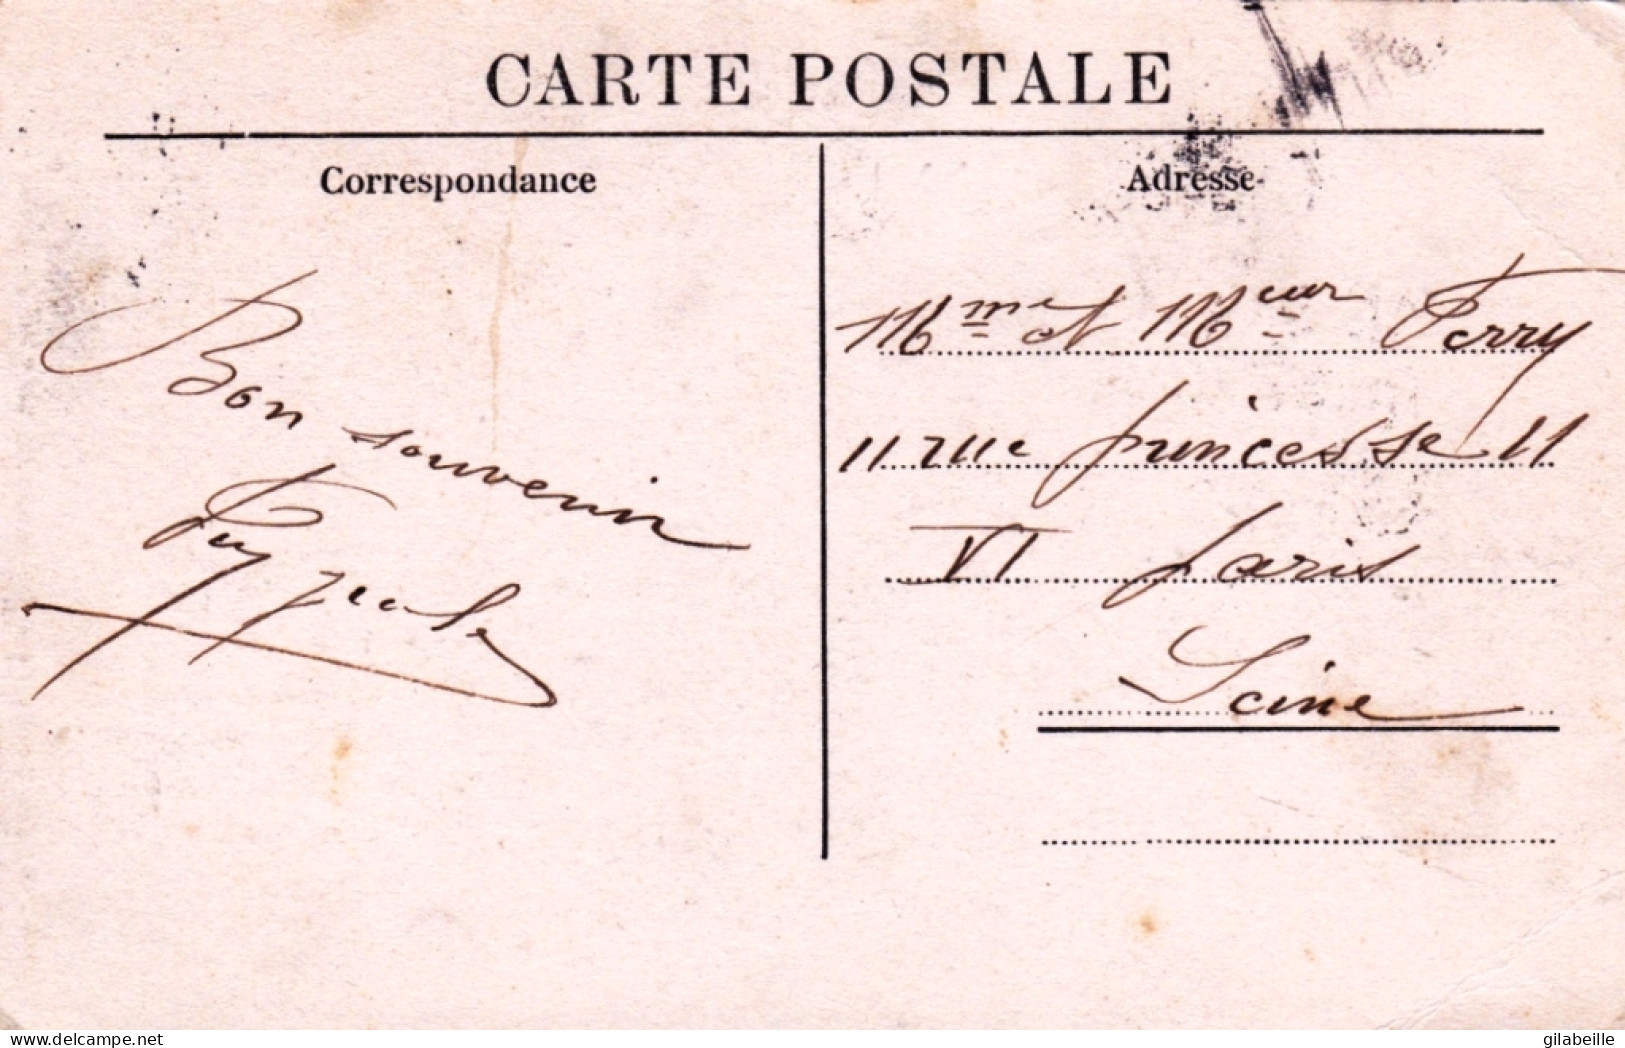 CARTE POSTALE
Correspondance
Bon souvenir
Adresse
Mme et Meur Ferry
11 rue princesse 11
VI paris
Seine
delcampe.net
gilabeille